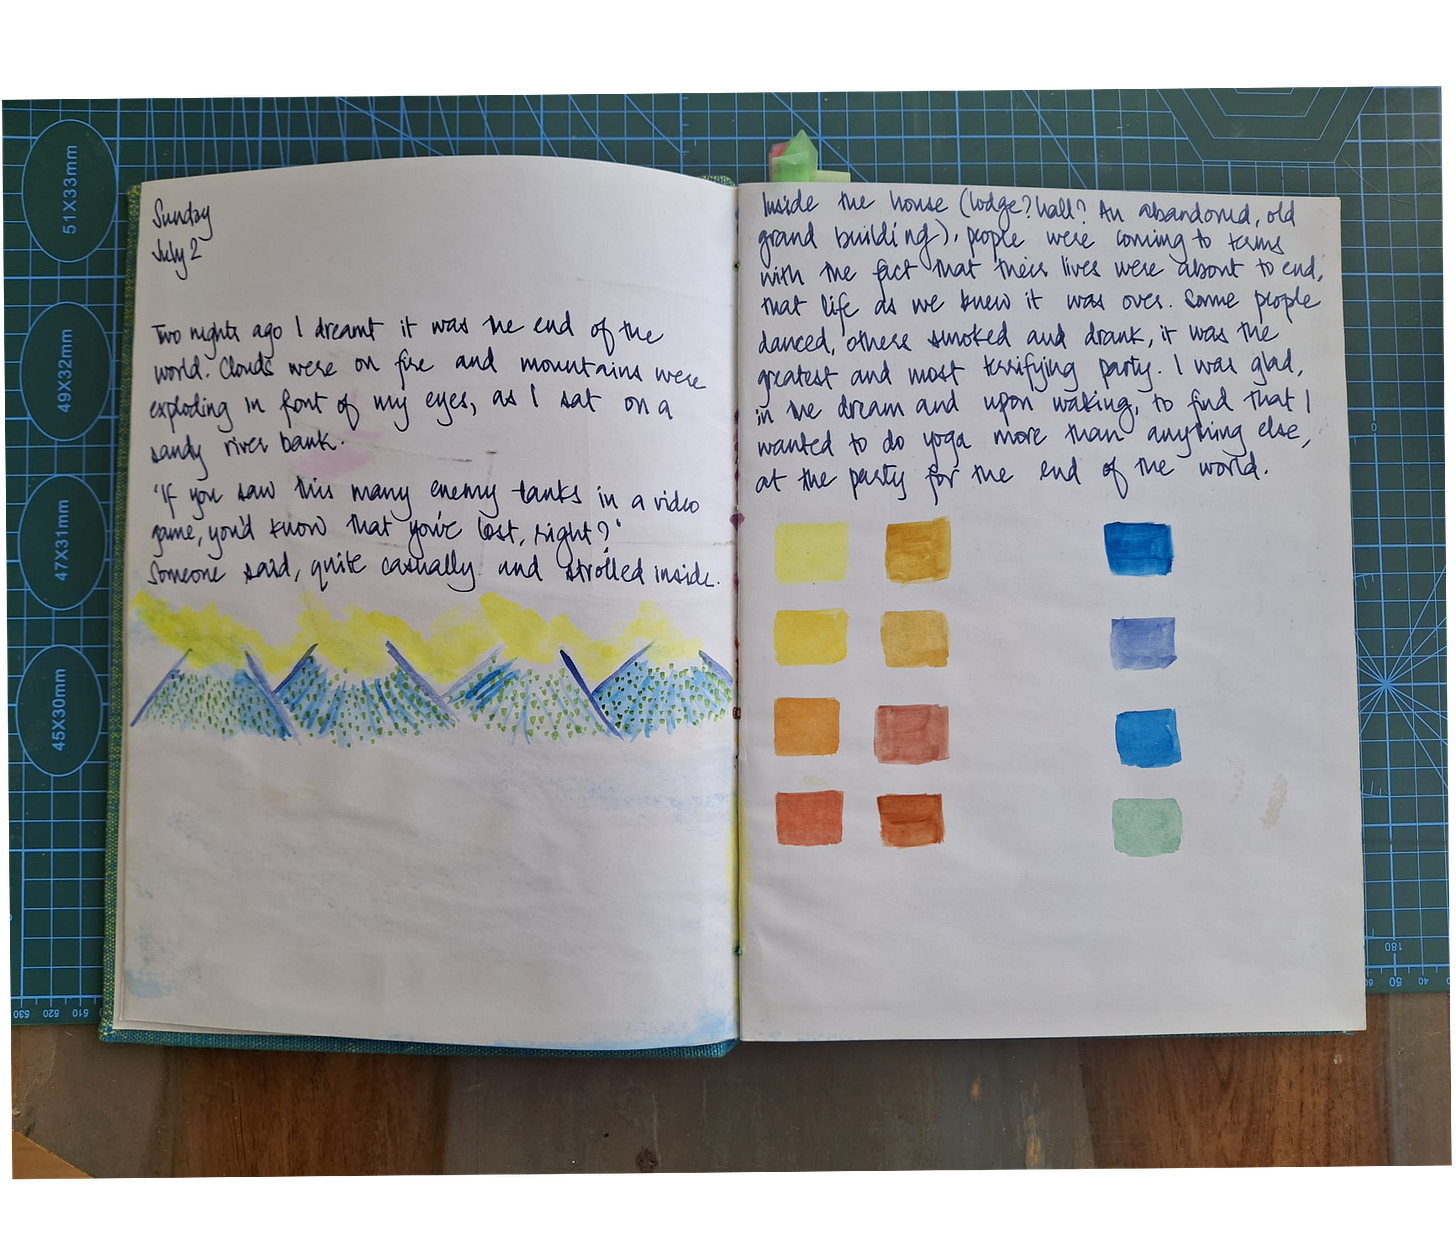 Sunday
July 2
Two nights ago I dreamt it was the end of the
world. Clouds were on fire and mountains were
exploding in front of my eyes, as I sat on a
sandy river bank.
'If you saw this many enemy tanks in a video
game, you'd know that you've lost, right?'
Someone said, quite casually and strolled inside.
Inside the house (lodge? hall? An abandoned, old
grand building), people were coming to terms
with the fact that their lives were about to end,
that life as we knew it was over. Some people
danced, others smoked and drank, it was the
greatest and most terrifying party. I was glad,
in the dream and upon waking, to find that I
wanted to do yoga more than anything else,
at the party for the end of the world.
51X33mm
49X32mm
47X31mm
45X30mm
530 520 510
0
180
50 40